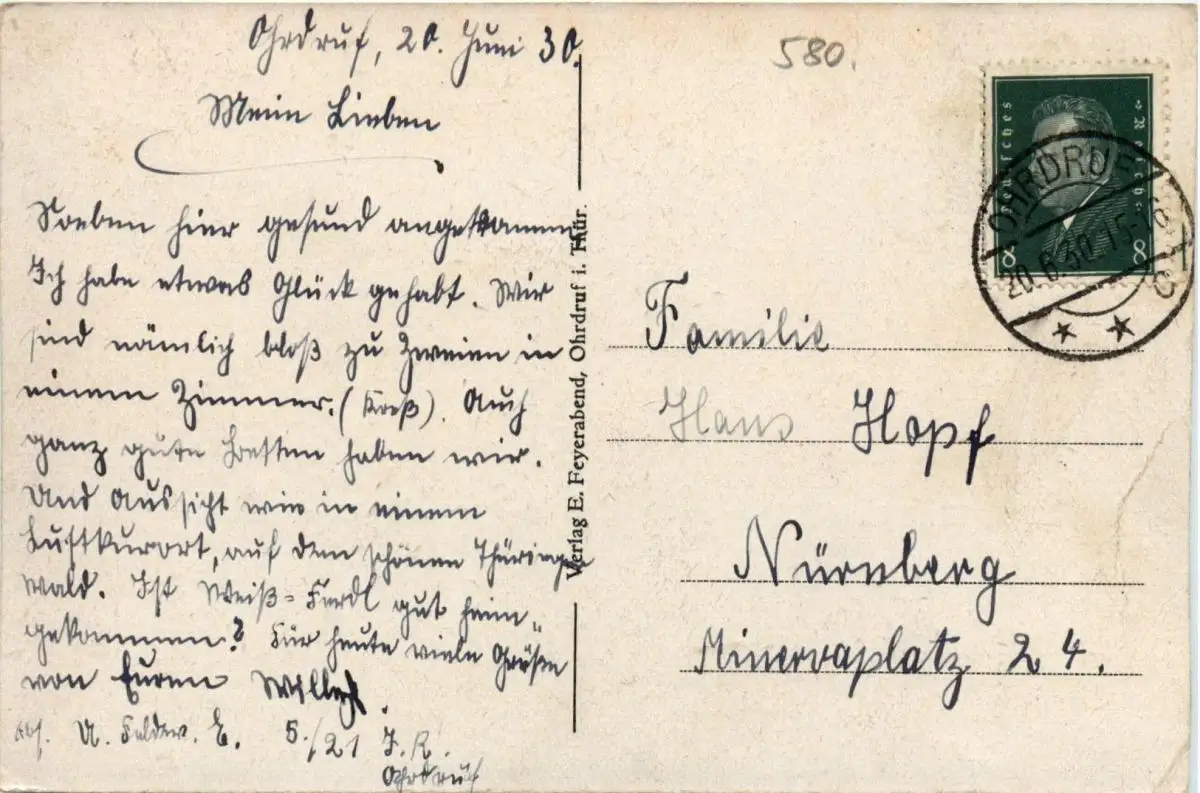 Ohrdruf, 20. Juni 30.
Meine Lieben
Soeben hier gesund angekommen.
Ich habe etwas Glück gehabt. Wir
sind nämlich bloß zu Zweien in
einem Zimmer. (Kreß). Auch
ganz gute Betten haben wir.
Und Aussicht wie in einem
Luftkurort, auf den schönen Thüringer
Wald. Ist Weiß-Ferdl gut heim-
gekommen? Für heute viele Grüße
von Eurem
Abs. U. E. 5./21 I.R.
Ohrdruf
Verlag E. Feyerabend, Ohrdruf i. Thür.
580.
Deutsches Reich
8 8
OHRDRUF
20.6.30.15-16
Familie
Hans Hopf
Nürnberg
Minervaplatz 24.